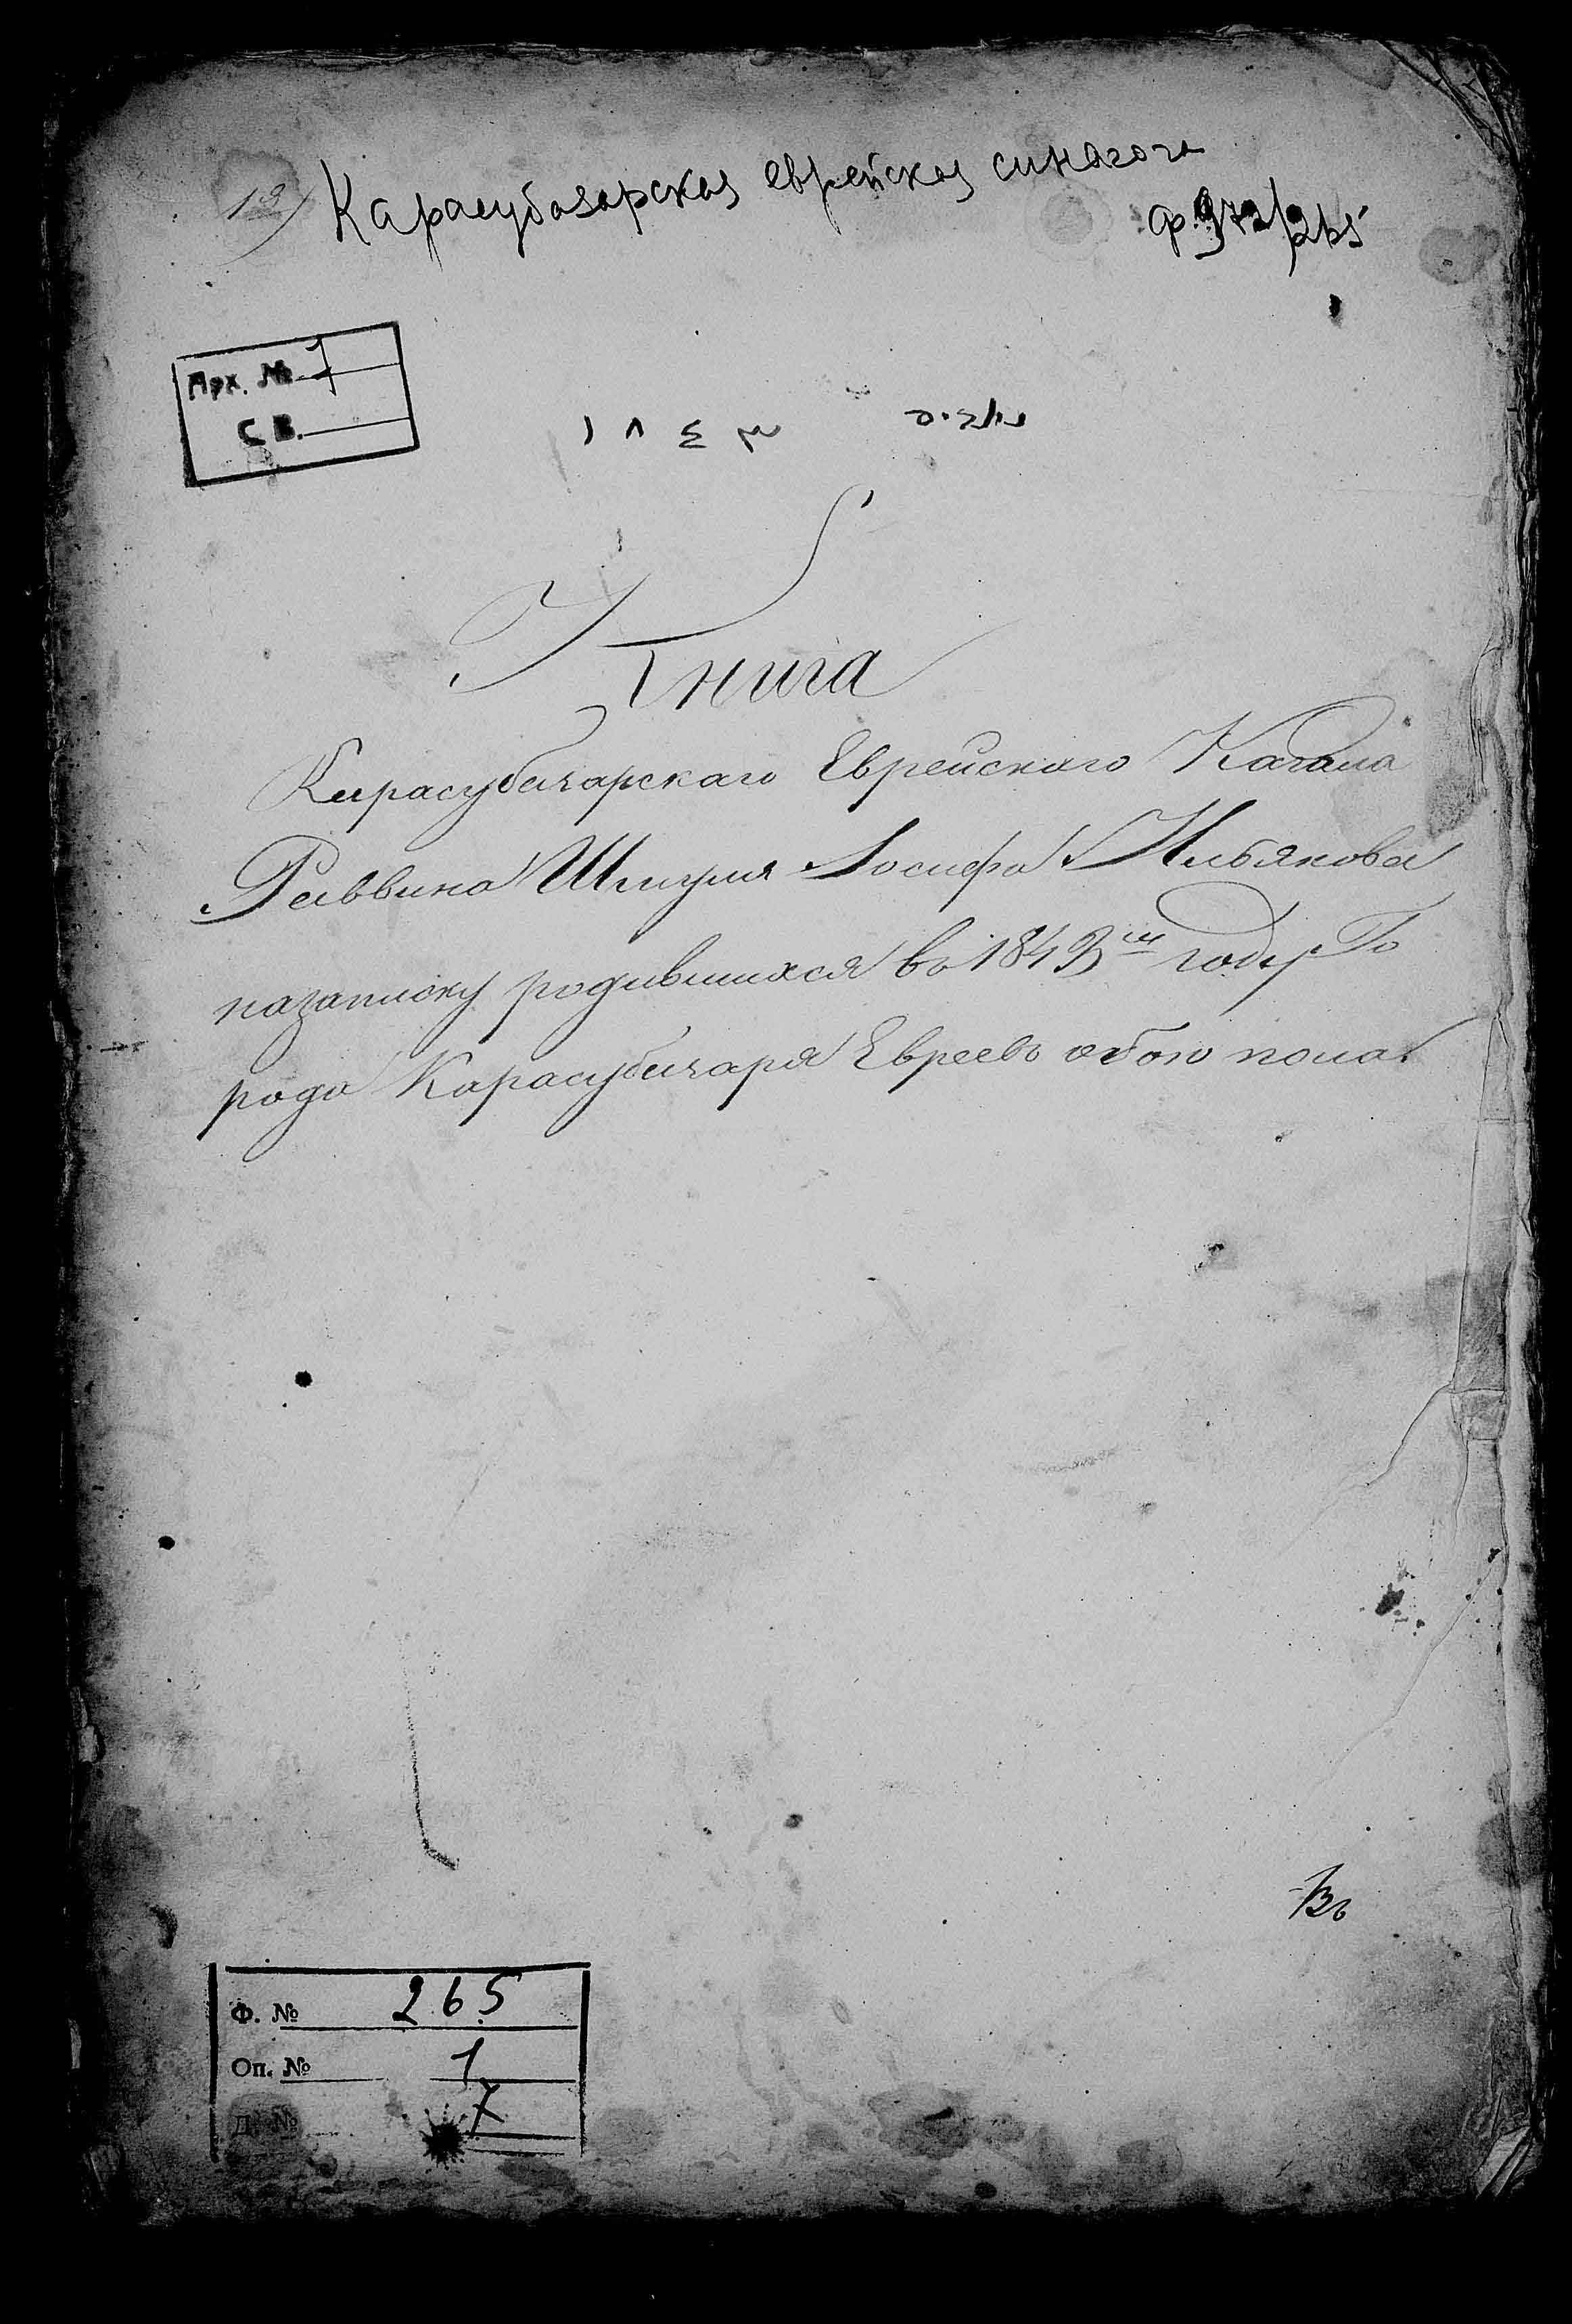 13) Карасубазарская еврейская синагога
ф. 265
Арх. № 7
С В.
١ ٨ ٤ ٣
Книга
Карасубазарскаго Еврейскаго Кагала
Раввина Иосифа
на записку родившихся въ 1843м году Го
рода Карасубазара Евреевъ обою пола
Въ
Ф. № 265
Оп. № 1
Д. № 7